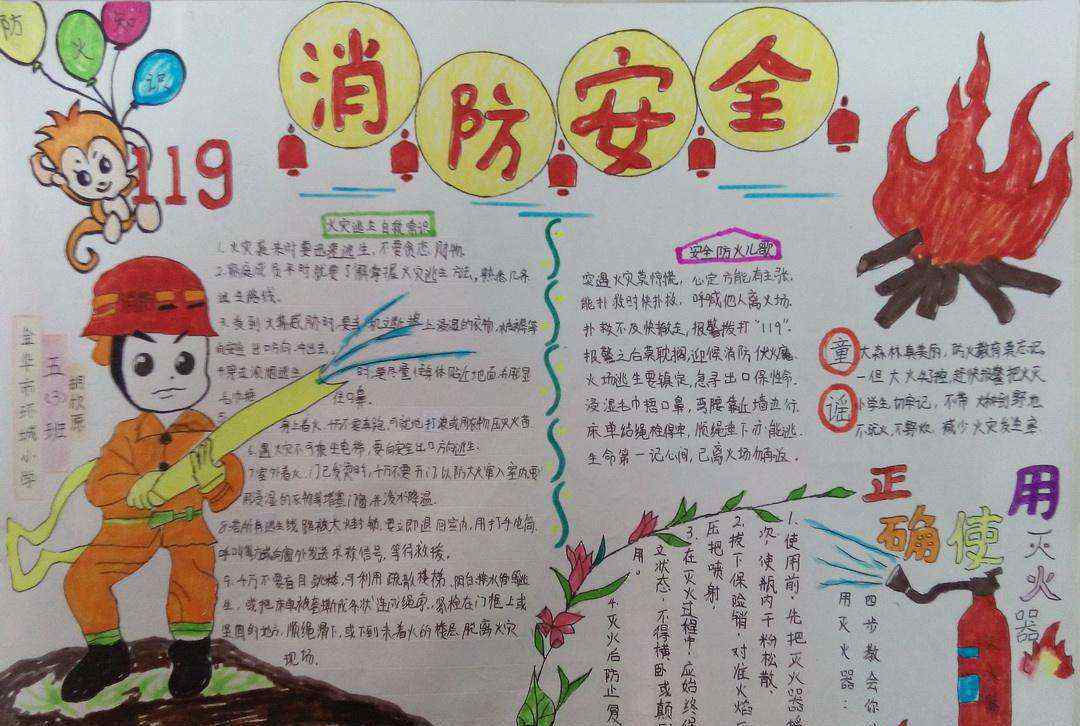 防火知识
119
消防安全
金华市环城小学
五(3)班
胡欣原
火灾逃生自救常识
1.火灾袭来时要迅速逃生,不要贪恋财物。
2.家庭成员平时就要了解掌握火灾逃生方法,熟悉几条
逃生路线。
身上着火,千万不要奔跑,可就地打滚或用厚衣物压灭火苗
6.遇火灾不可乘坐电梯,要向安全出口方向逃生。
7.室外着火,门已发烫时,千万不要开门以防大火窜入室内,要
用浸湿的衣物等堵塞门窗,并泼水降温。
8.若所有逃生线路被大火封锁,要立即退回室内,用打手电筒、
呼叫等方式向窗外发送求救信号,等待救援。
9.千万不要盲目跳楼,可利用疏散楼梯、阳台
生,或把床单被套撕成条状连成绳索,紧拴在门框上或
坚固的地方,顺绳滑下,或下到未着火的楼层,脱离火灾
现场。
安全防火儿歌
突遇火灾莫惊慌,心定方能有主张。
能扑救时快扑救,呼喊他人离火场。
扑救不及快撤走,报警拨打“119”。
报警之后莫耽搁,迎候消防伏火魔。
火场逃生要镇定,急寻出口保性命。
浸湿毛巾捂口鼻,弯腰靠近墙边行。
床单结绳拴得牢,顺绳垂下亦能逃。
生命第一记心间,已离火场勿再返。
童谣
大森林真美丽,防火教育莫忘记。
小学生切牢记,不带火种到野地
正确使用灭火器
四步教会你
用灭火器:
1.使用前,先把灭火器摇
次,使瓶内干粉松散。
2.拔下保险销,对准火焰
压把喷射。
3.在灭火过程中,应始终保
立状态,不得横卧或颠
用。
4.灭火后防止复